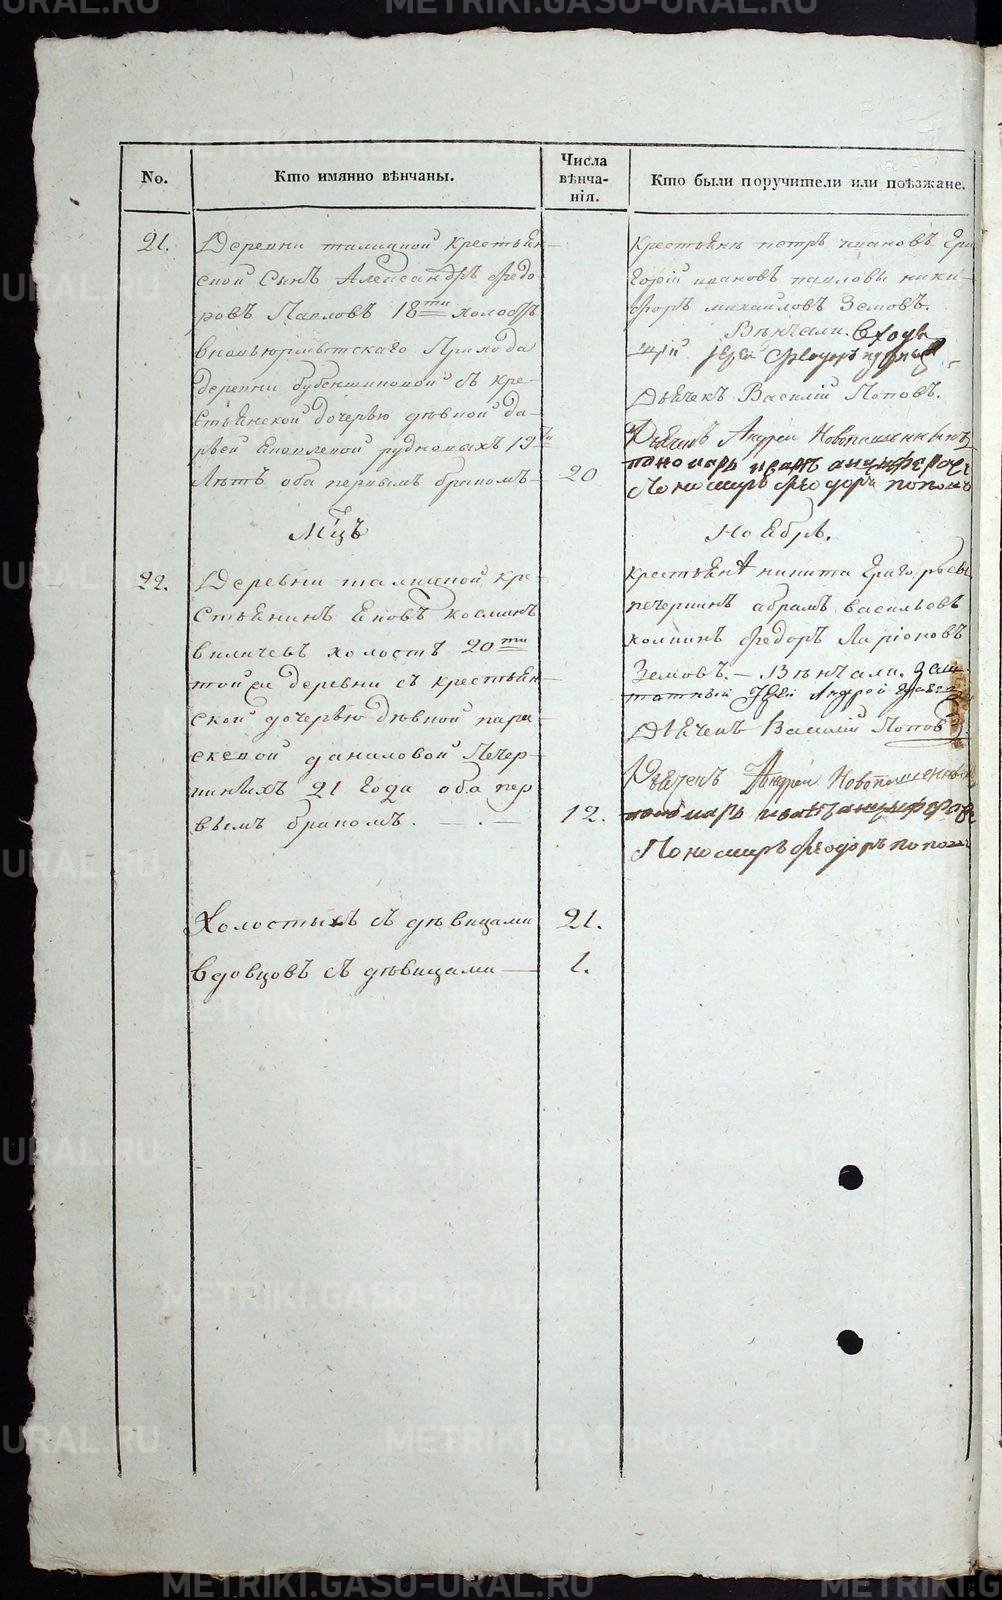 No.
Кто имянно вѣнчаны.
Числа
вѣнча-
нія.
Кто были поручители или поѣзжане.
21.
Деревни талицкой крестьян-
ской сынъ Александръ Федо
ровъ Павловъ 18ти холостъ
деревни бубенщиковой съ кре-
стьянской дочерью дѣвкой да-
рьей рудновыхъ 19ти
Лѣтъ оба первымъ бракомъ
20
крестьяне петръ ивановъ Гри
горій ивановъ павловы ники-
форъ михайловъ Земовъ.
Вѣнчали. Сходы
щій Іерей Феодоръ
Дьячекъ Василій Поповъ.
Дьячекъ Андрей Новопашенныхъ
пономарь иванъ анцыферовъ
Пономарь Феодоръ поповъ
Мцъ
Ноебрь.
22.
Деревни талицкой кре-
стьянинъ Яковъ Косминъ
холостъ 20ти
той же деревни съ крестьян-
ской дочерью дѣвкой пара-
скевой даниловой Печер-
киныхъ 21 года оба пер
вымъ бракомъ. — . —
12.
крестьяне никита Григорьевъ
печеркинъ абрамъ васильевъ
федоръ Ларіоновъ
Земовъ. — Вѣнчали. Заш-
татный Іерей Андрей
Дьячекъ Василій Поповъ
Дьячекъ Андрей Новопашенныхъ
пономарь иванъ анцыферовъ
Пономарь Феодоръ поповъ
Холостыхъ съ дѣвицами
21.
Вдовцовъ съ дѣвицами —
1.
METRIKI.GASO-URAL.RU